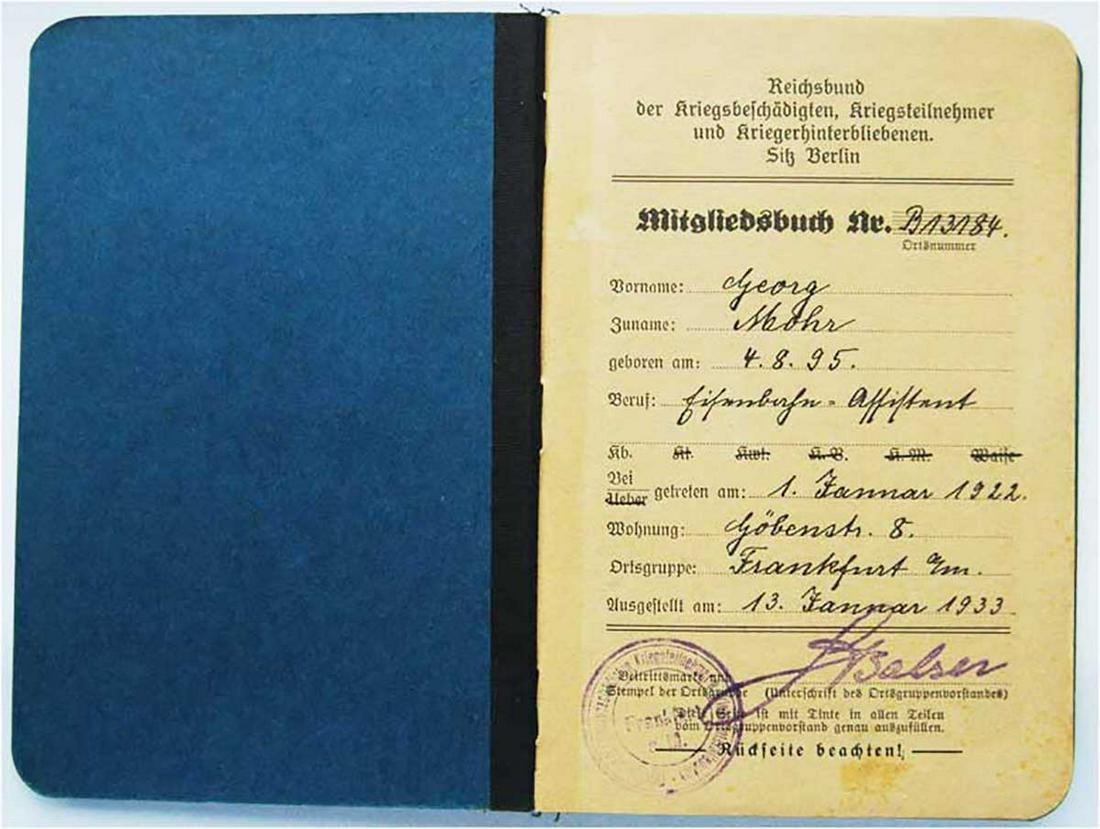 Reichsbund
der Kriegsbeschädigten, Kriegsteilnehmer
und Kriegerhinterbliebenen.
Sitz Berlin
Mitgliedsbuch Nr. B13184.
Ortsnummer
Vorname: Georg
Zuname: Mohr
geboren am: 4. 8. 95.
Beruf: Eisenbahn=Assistent
Kb. Kt. Kwt. K.B. K.M. Waise
Bei
Ueber getreten am: 1. Januar 1922.
Wohnung: Göbenstr. 8.
Ortsgruppe: Frankfurt a/m.
Ausgestellt am: 13. Januar 1933
Balser
Beitrittsmarke und
Stempel der Ortsgruppe (Unterschrift des Ortsgruppenvorstandes)
Diese Seite ist mit Tinte in allen Teilen
vom Ortsgruppenvorstand genau auszufüllen.
Rückseite beachten!